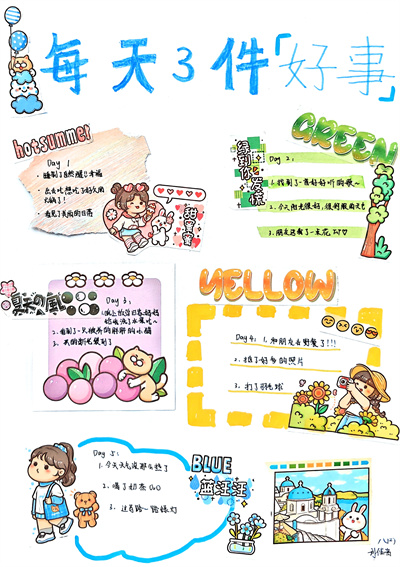 每天3件「好事」
hotsummer
Day 1
• 睡到了自然醒!!幸福
• 出去吃想吃了好久的火锅了!
• 看见了美丽的日落
甜蜜蜜
GREEN
绿到你发慌
Day 2:
1. 找到了一首好好听的歌~
2. 今天阳光很好,很舒服的天气
3. 朋友送我了一束花
夏天的风
Day 3:
2. 看到了一只很乖的胖胖的小猫
3. 买的新衣裳到了
YELLOW
Day 4:
1. 和朋友去野餐了!!!
2. 拍了好多的照片
3. 打了羽毛球
Day 5:
1. 今天天气没那么热了
2. 喝了奶茶
3. 过马路一路绿灯
BLUE
蓝汪汪